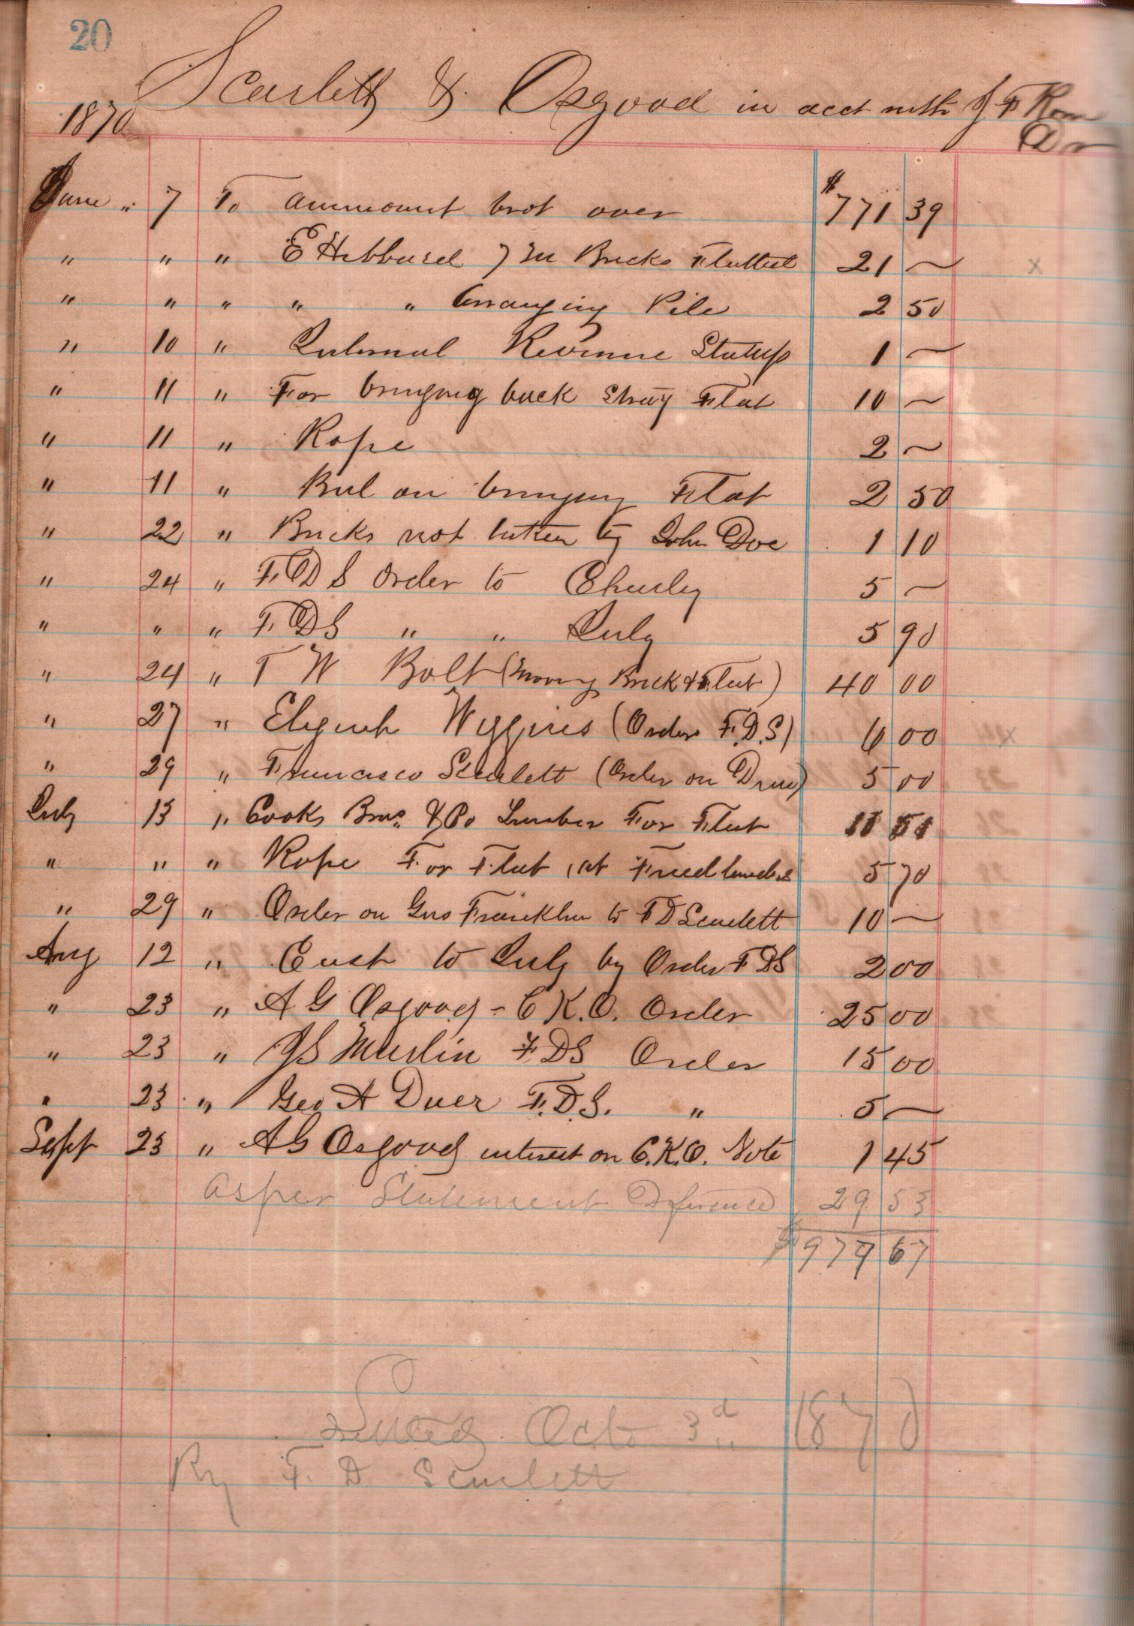 20
Scarlett & Osgood in acct with J F
1870
Dr
June " 7 To ammount brot over $771 39
" " " E Hibbard 7 M Bricks Flatted 21 ~
" " " " " arranging Pile 2 50
" 10 " Internal Revenue Stamps 1 ~
" 11 " For bringing back Stray Flat 10 ~
" 11 " Rope 2 ~
" 11 " Bal on bringing Flat 2 50
" 22 " Bricks not taken by John Doe 1 10
" 24 " F.D S order to Charley 5 ~
" " " F DS " " July 5 90
" 24 " T W Bolt (moving Brick & Flat) 40 00
" 27 " Elijah Wiggins (Order F.D.S) 6 00
" 29 " Francisco Scarlett (Order on Drew) 5 00
July 13 " Cooks Bros & Co Lumber For Flat 11 51
" " " Rope For Flat at 5 70
" 29 " Order on Gus Franklin to F D Scarlett 10 ~
Aug 12 " Cash to July by Order F DS 2 00
" 23 " A G Osgood - C K.O. Order 25 00
" 23 " JS Martin F DS Order 15 00
" 23 " Geo A Duer F.D.S. " 5 ~
Sept 23 " A G Osgood interest on C.K.O. Note 1 45
As per Statement Difference 29 53
$979 67
Settled Oct 3d 1870
By F. D Scarlett